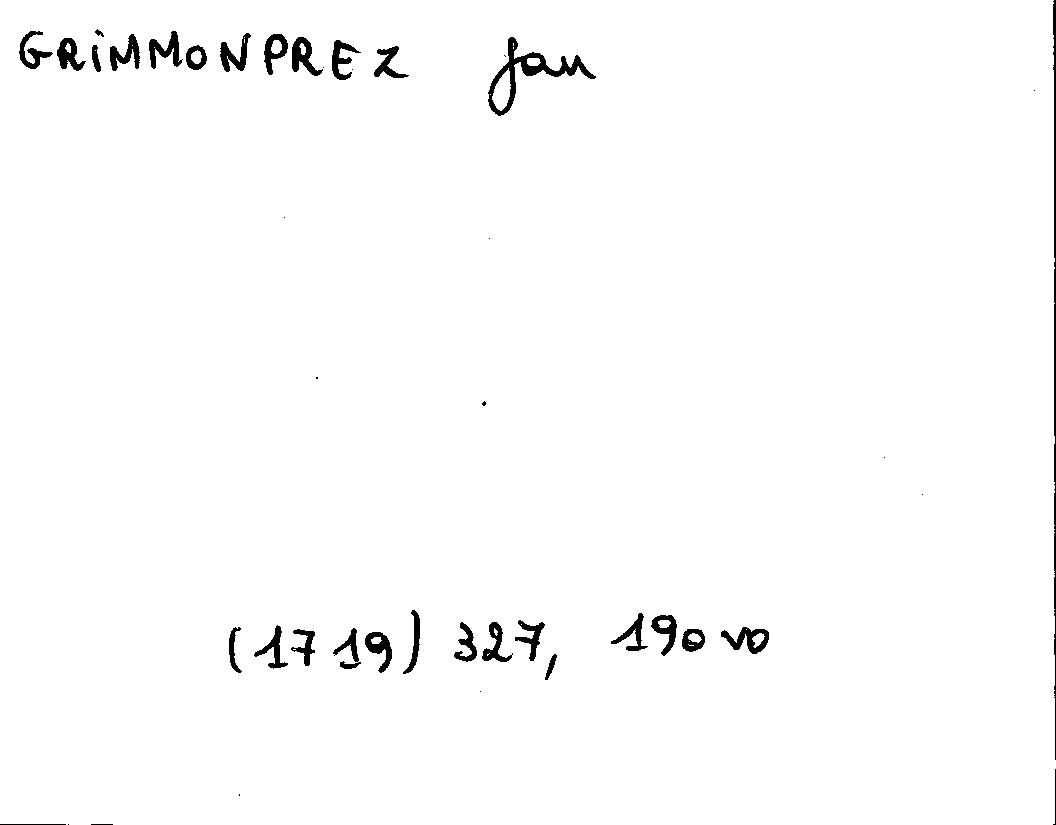 GRIMMONPREZ Jan
(1719) 327, 190 vo